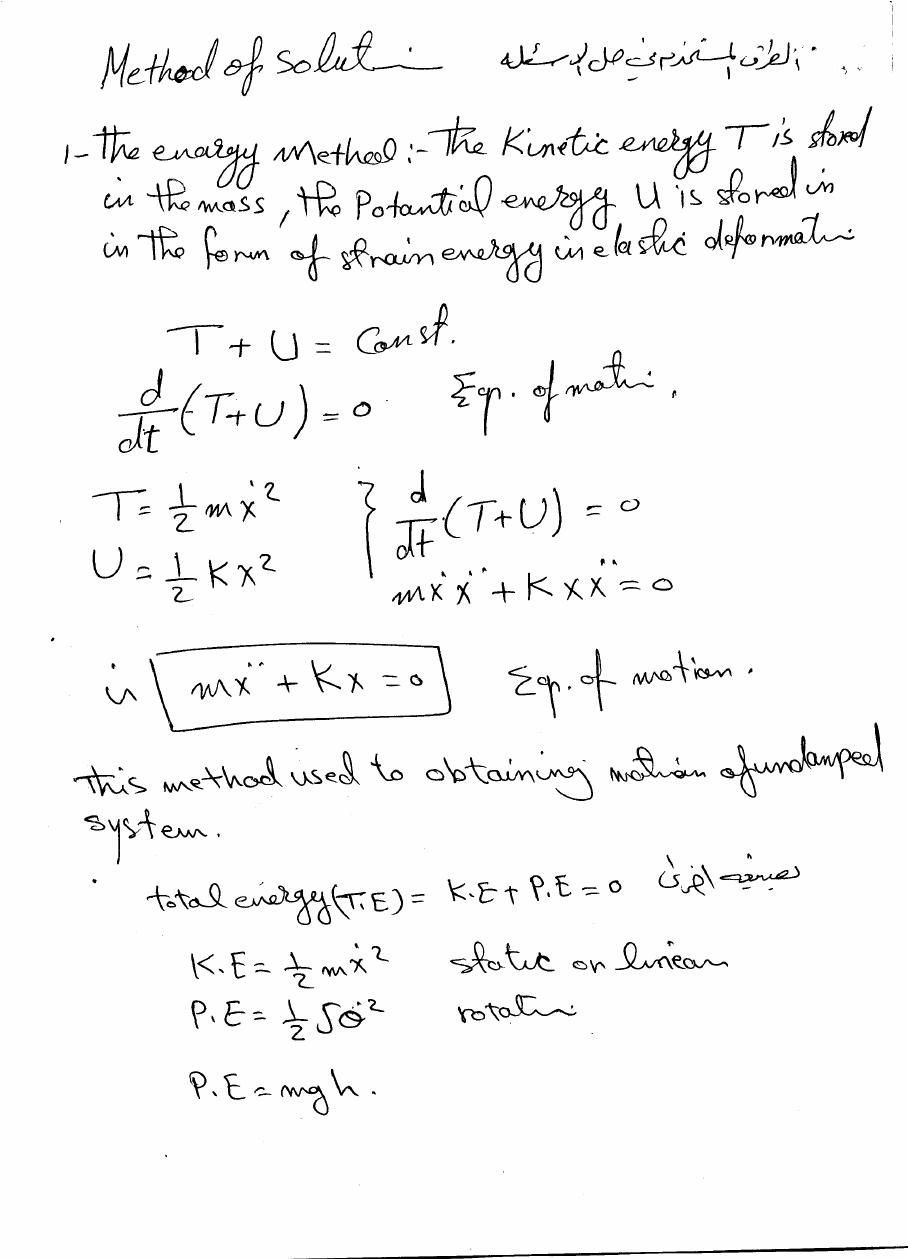 Method of Soluti
الطرق المستخدم في حل الاسئله
1- The enargy Method :- The Kinetic energy T is stored
in the mass, the Potantial energy U is stored in
in the form of strain energy in elastic deformati
T + U = Const.
d/dt (T+U) = 0 Eqn. of moti.
T = 1/2 mẋ² } d/dt (T+U) = 0
U = 1/2 Kx² mẋẍ + Kxẍ = 0
mẍ + Kx = 0 Eqn. of motion.
this method used to obtaining motion of undamped
system.
total energy (T.E) = K.E + P.E = 0 صيغه اخرى
K.E = 1/2 mẋ² static or linear
P.E = 1/2 J θ̇² rotati
P.E = mgh.